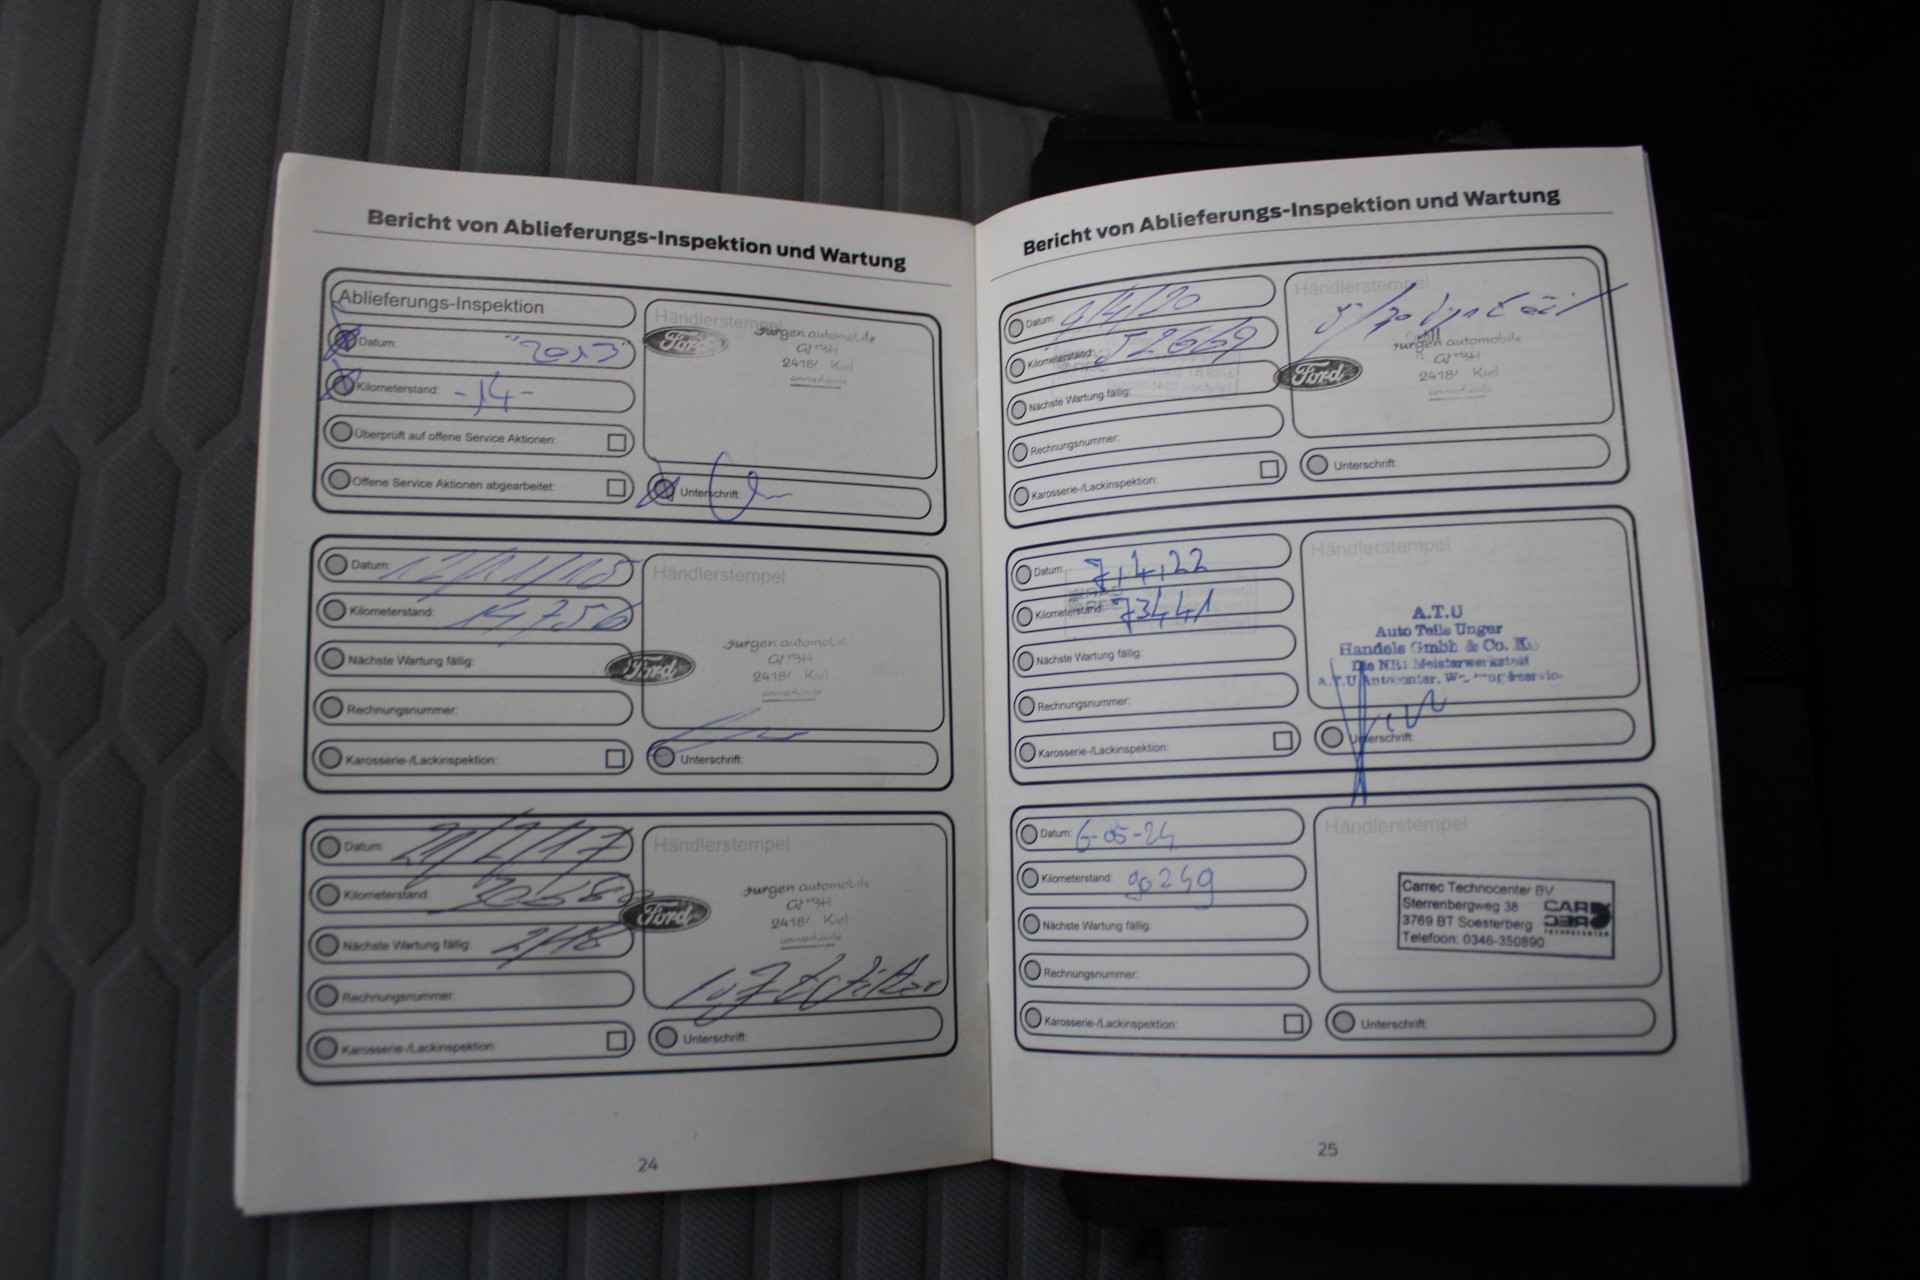 Bericht von Ablieferungs-Inspektion und Wartung
Ablieferungs-Inspektion
Datum:
Kilometerstand: -14-
Überprüft auf offene Service Aktionen:
Offene Service Aktionen abgearbeitet:
Händlerstempel
Ford
Jurgen automobile
Unterschrift:
Datum:
Kilometerstand: 14756
Nächste Wartung fällig:
Rechnungsnummer:
Karosserie-/Lackinspektion:
Händlerstempel
Ford
Jurgen automobile
Unterschrift:
Datum:
Kilometerstand:
Nächste Wartung fällig: 2/18
Rechnungsnummer:
Karosserie-/Lackinspektion:
Händlerstempel
Ford
Jurgen automobile
Unterschrift:
24
Bericht von Ablieferungs-Inspektion und Wartung
Datum: 9/4/20
Kilometerstand: 52669
Nächste Wartung fällig:
Rechnungsnummer:
Karosserie-/Lackinspektion:
Händlerstempel
Ford
Jurgen automobile
Unterschrift:
Datum: 7.4.22
Kilometerstand: 73441
Nächste Wartung fällig:
Rechnungsnummer:
Karosserie-/Lackinspektion:
Händlerstempel
A.T.U
Auto Teile Unger
Handels Gmbh & Co.
Meisterwerkstatt
A.T.U
Unterschrift:
Datum: 6-05-24
Kilometerstand: 90249
Nächste Wartung fällig:
Rechnungsnummer:
Karosserie-/Lackinspektion:
Händlerstempel
Carrec Technocenter BV
Sterrenbergweg 38
3769 BT Soesterberg
Telefoon: 0346-350890
CAR
REC
TECHNOCENTER
Unterschrift:
25